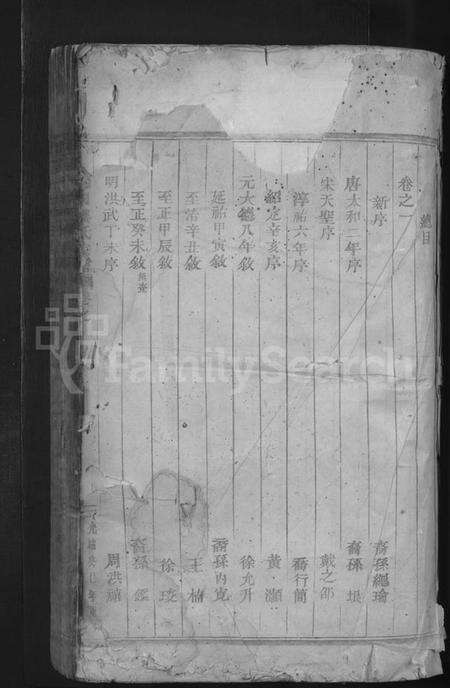 總目
卷之一
新序 裔孫繩瑜
唐太和二年序 裔孫垠
宋天聖序 戴之邵
淳祐六年序 喬行簡
紹定辛亥序 黃灝
元大德八年序 徐允升
延祐甲寅敘 裔孫內寬
至治辛丑敘 王楠
至正甲辰敘 徐琰
至正癸未敘 裔孫鑑
明洪武丁未序 周洪
FamilySearch